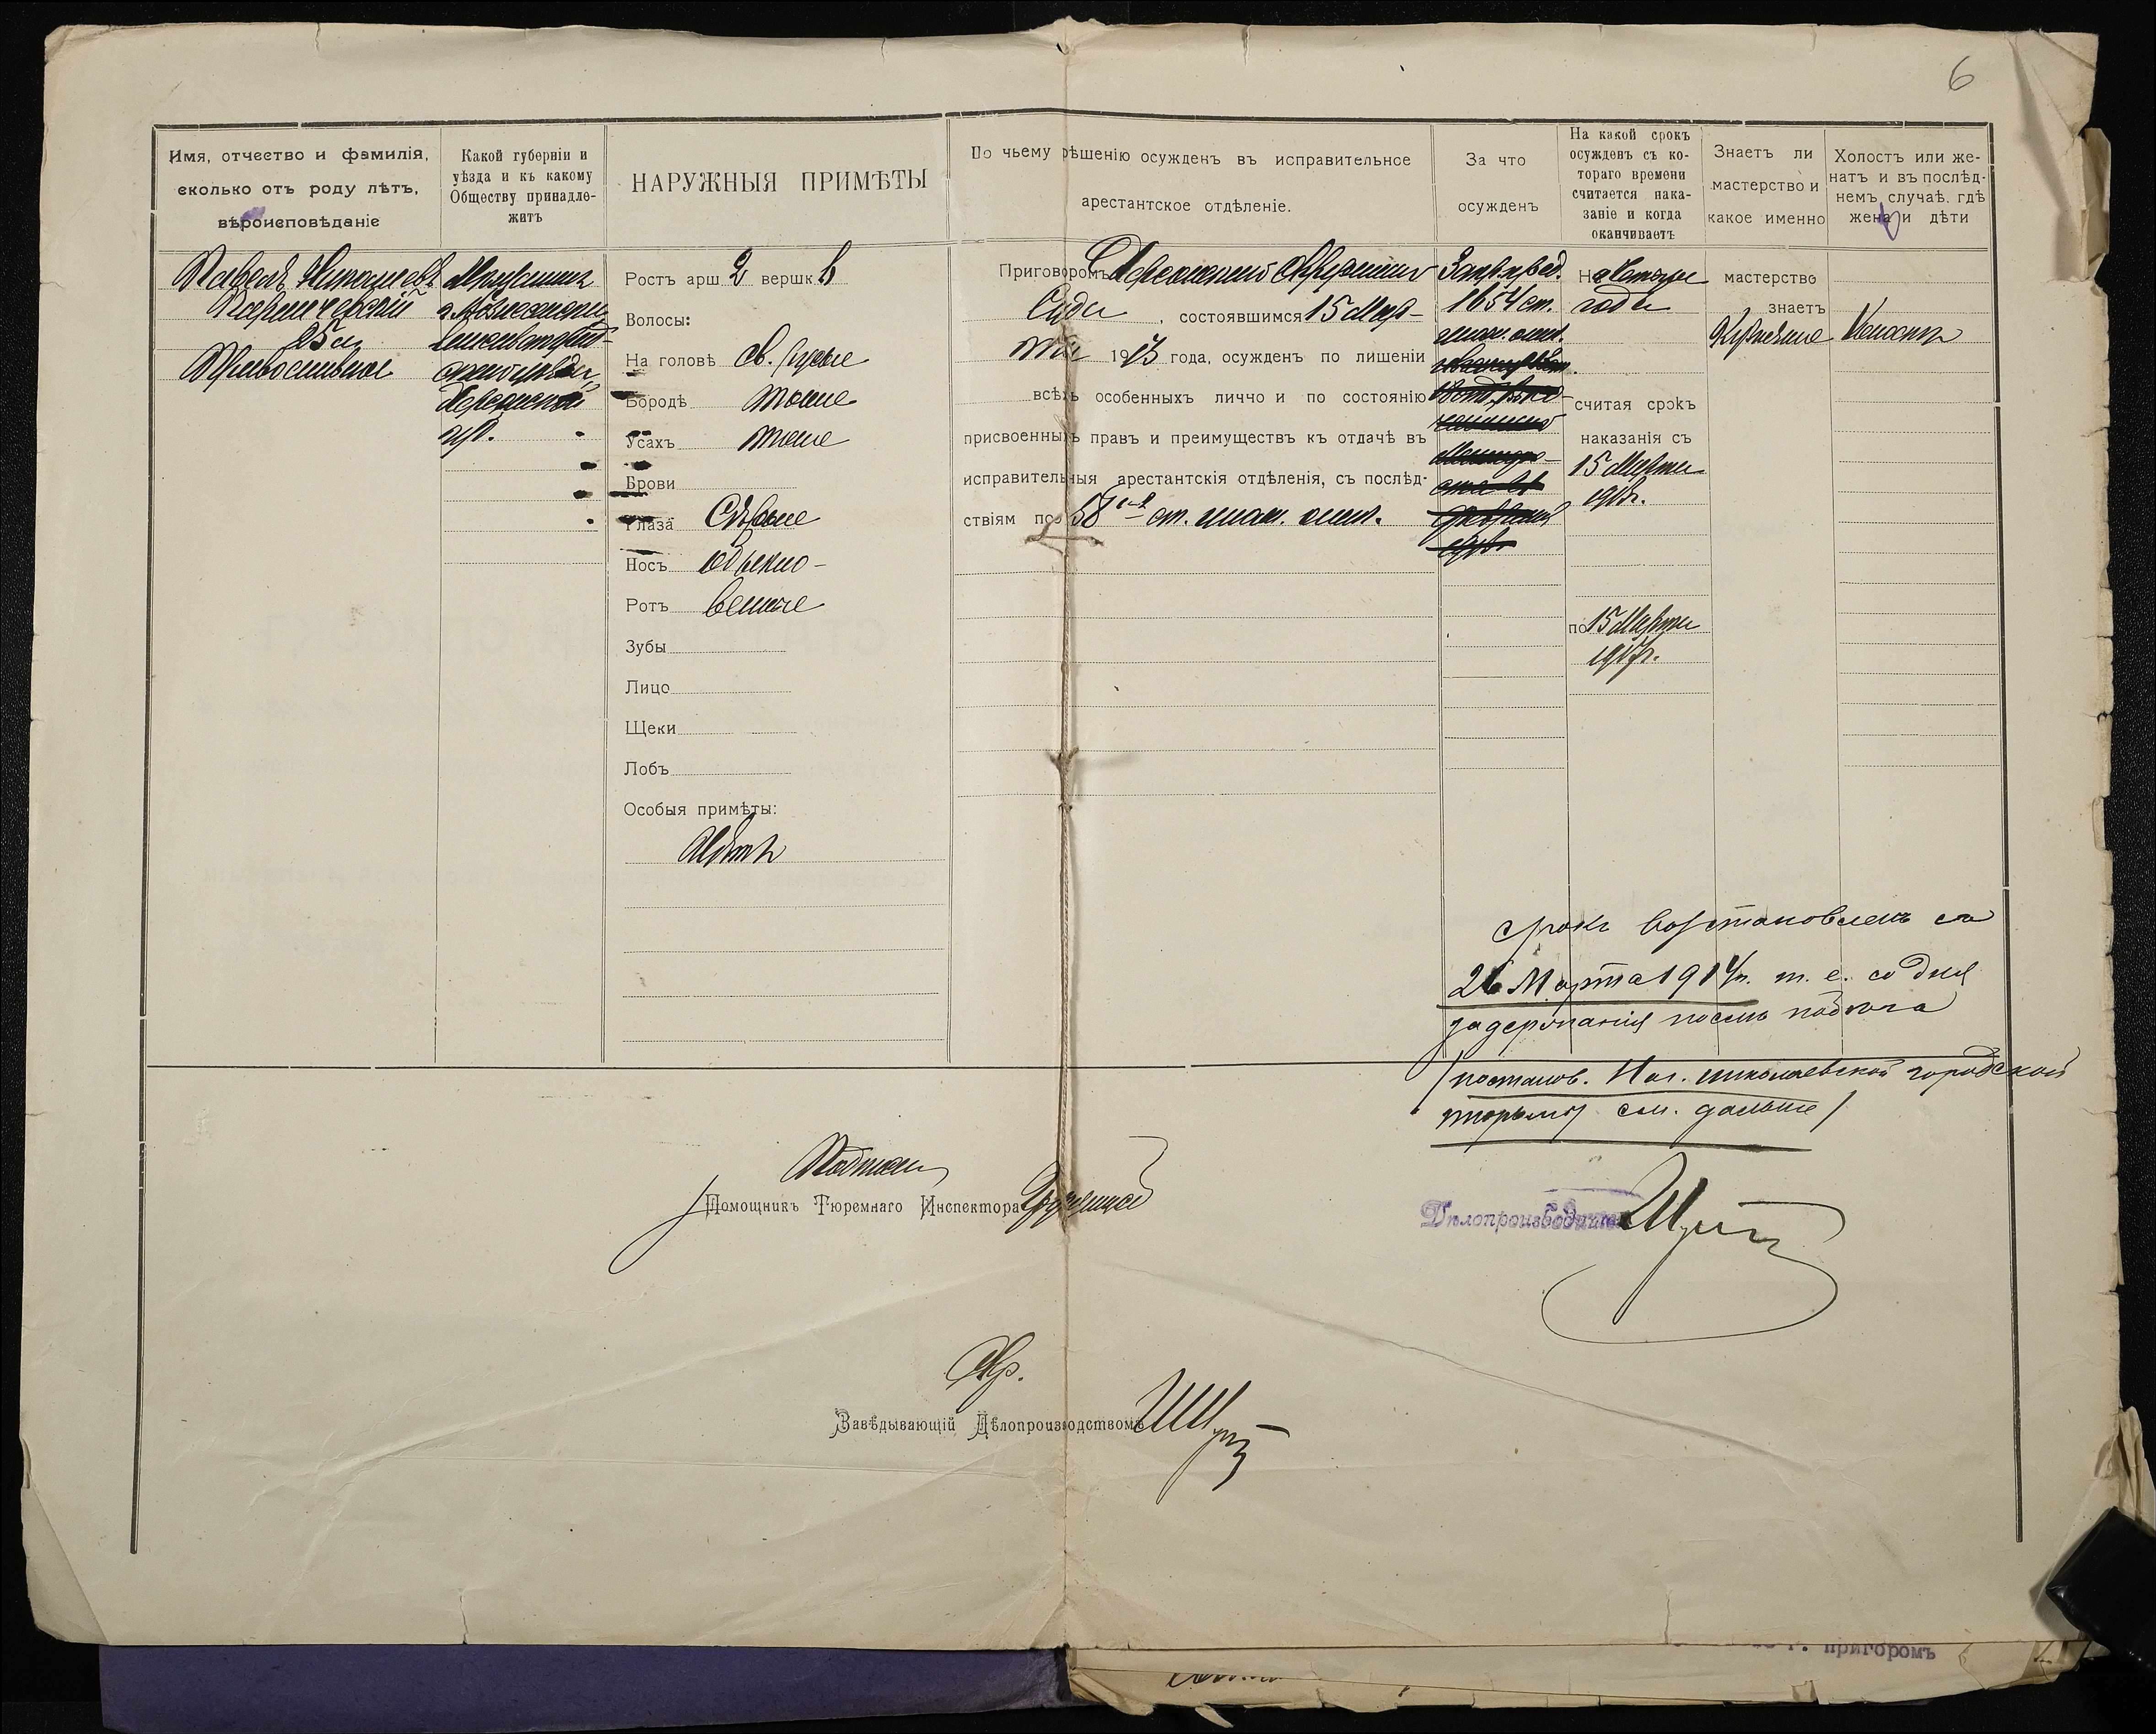 6
Имя, отчество и фамилія,
сколько отъ роду лѣтъ,
вѣроисповѣданіе
Какой губерніи и
уѣзда и къ какому
Обществу принадле-
житъ
НАРУЖНЫЯ ПРИМѢТЫ
По чьему рѣшенію осужденъ въ исправительное
арестантское отдѣленіе.
За что
осужденъ
На какой срокъ
осужденъ съ ко-
тораго времени
считается нака-
заніе и когда
оканчиваетъ
Знаетъ ли
мастерство и
какое именно
Холостъ или же-
натъ и въ послѣд-
немъ случаѣ, гдѣ
жена и дѣти
Павелъ Николаевъ
25 л.
Православное
Мѣщанинъ
Херсонской
губ.
Ростъ арш 2 вершк 6
Волосы:
На головѣ св. русые
Бородѣ тоже
Усахъ тоже
Брови
Глаза Сѣрые
Носъ обыкно-
Ротъ венные
Зубы
Лицо
Щеки
Лобъ
Особыя примѣты:
Нѣтъ
Приговоромъ Херсонскаго Окружнаго
Суда, состоявшимся 15 Мар-
та 1913 года, осужденъ по лишеніи
всѣхъ особенныхъ лично и по состоянію
присвоенныхъ правъ и преимуществъ къ отдачѣ въ
исправительныя арестантскія отдѣленія, съ послѣд-
ствіям по 58 ст. улож. о нак.
1654 ст.
На четыре
года
считая срокъ
наказанія съ
15 Марта
1913 г.
по 15 Марта
1917 г.
мастерство
знаетъ
Холостъ
Срокъ возстановленъ съ
26 Марта 1914 г. т. е. со дня
задержанія послѣ побѣга
/постанов. Нач. Николаевской городской
тюрьмы см. дальше/
Помощникъ Тюремнаго Инспектора
Дѣлопроизводитель
Завѣдывающій Дѣлопроизводствомъ
г. пригоромъ